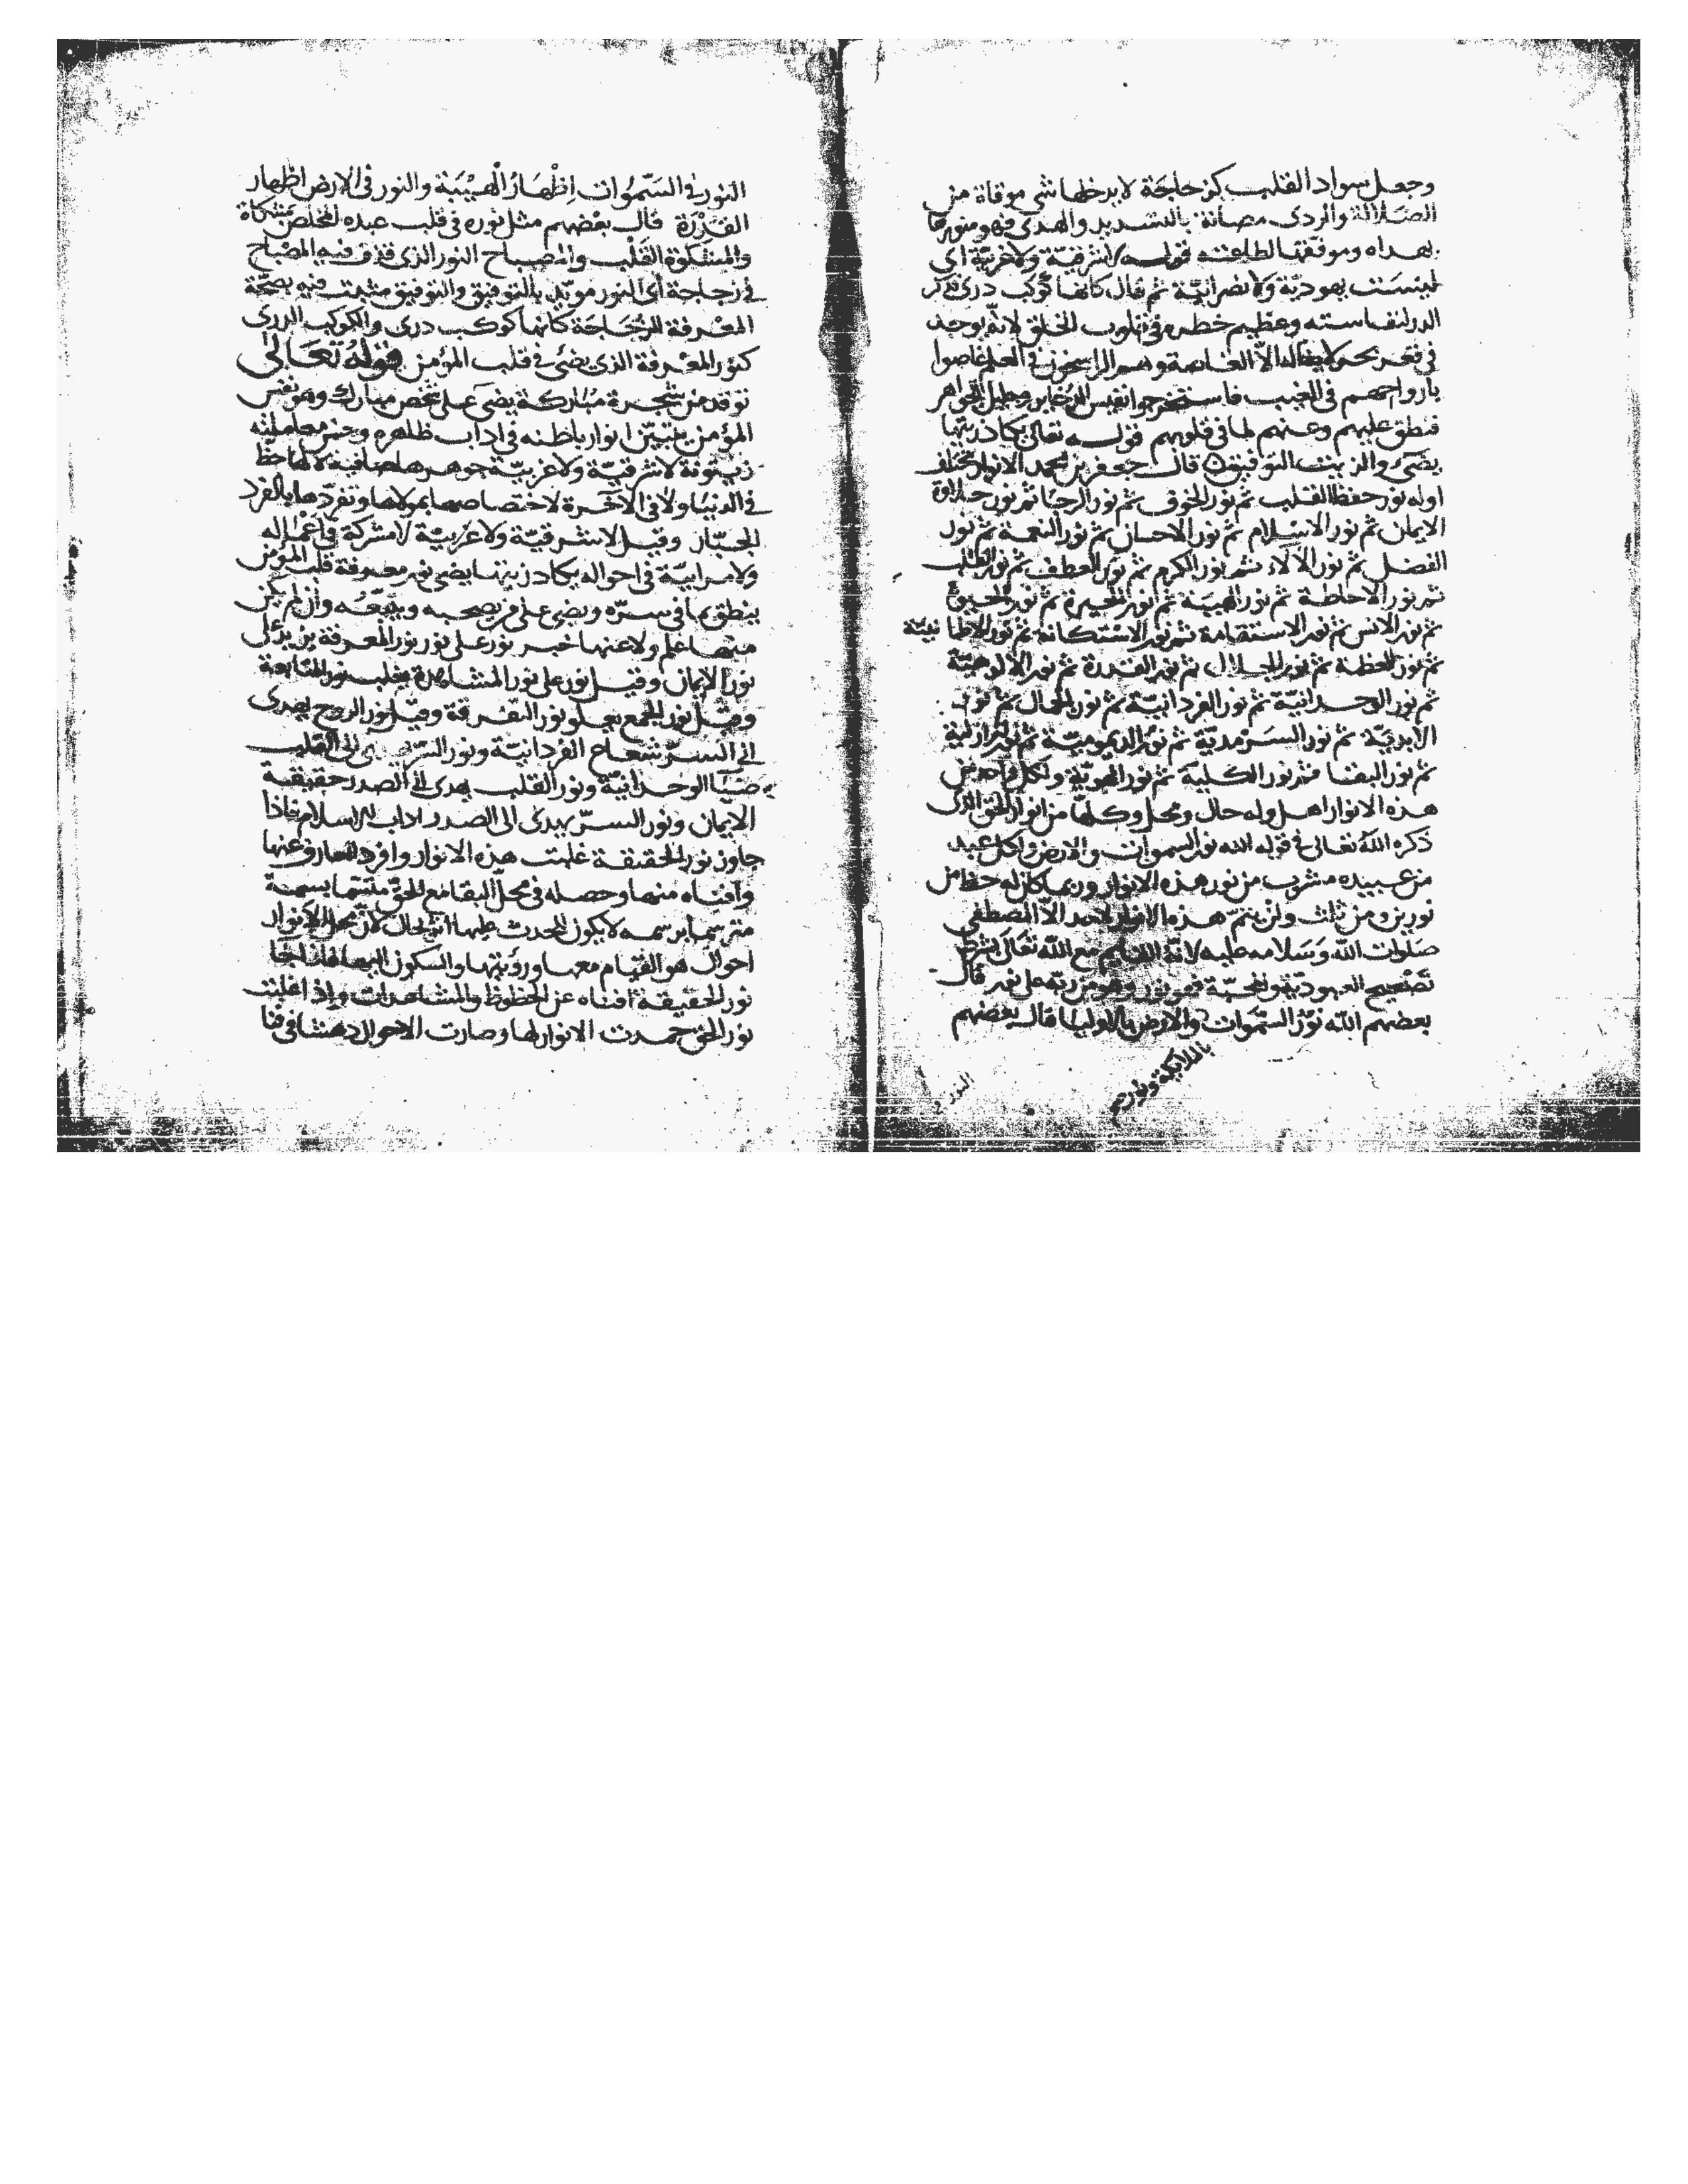 وجعل سواد القلب كزجاجة لا يدخلها شي موقاة من
الضلالة والردى مصانة بالتسديد والهدى فهو منورها
بهداه وموفقها لطاعته قوله لا شرقية ولا غربية اى
ليست يهودية ولا نصرانية ثم قال كانها كوكب درى ذكر
الدر لنفاسته وعظيم خطره فى قلوب الخلق لانه يوجد
فى قعر بحر الا الغاصة وهم الراسخون فى العلم غاصوا
بارواحهم فى الغيب فاستخرجوا نفيس الذخاير وجليل الجواهر
فنطق عليهم وعنهم لما فى قلوبهم قوله تعالى يكاد زيتها
يضىء والزيت التوفيق قال جعفر بن محمد الانوار تختلف
اوله نور حفظ القلب ثم نور الخوف ثم نور الرجا ثم نور حلاوة
الايمان ثم نور الاسلام ثم نور الاحسان ثم نور النعمة ثم نور
الفضل ثم نور الالاء ثم نور الكرم ثم نور العطف ثم نور القلب
ثم نور الاحاطة ثم نور الهيبة ثم نور الحيرة ثم نور الحيوة
ثم نور الانس ثم نور الاستقامة ثم نور الاستكانة ثم نور الطمانينة
ثم نور العظمة ثم نور الجلال ثم نور القدرة ثم نور الالوهية
ثم نور الوحدانية ثم نور الفردانية ثم نور الجمال ثم نور
الابدية ثم نور السرمدية ثم نور الديمومية ثم نور الازلية
ثم نور البقا ثم نور الكلية ثم نور الهوية ولكل واحد من
هذه الانوار اهل وله حال ومحل وكلها من انوار الحق الذى
ذكره الله تعالى فى قوله الله نور السموات والارض ولكل عبد
من عبيده مشرب من نور هذه الانوار وربما كان له حظ من
نورين ومن ثلث ولن يتم هذه الانوار لاحد الا المصطفى
صلوات الله وسلامه عليه لانه القايم مع الله تعالى بشرط
تصحيح العبودية والمحبة فهو نور وهو من ربه على نور قال
بعضهم الله نور السموات والارض بالاوليا قال بعضهم
بالملايكة ونور
النور فى
النور فى السموات اظهار الهيبة والنور فى الارض اظهار
القدرة قال بعضهم مثل نوره فى قلب عبده المخلص كمشكاة
والمشكوة القلب والمصباح النور الذى قذف فيه المصباح
فى زجاجة اى النور مويد بالتوفيق والتوفيق فيه بصحة
المعرفة الزجاجة كانها كوكب درى والكوكب الدرى
كنور المعرفة الذى يضىء فى قلب المؤمن قوله تعالى
توقد من شجرة مباركة يضىء على شخص مبارك وهو نفس
المؤمن يتبين انوار باطنه فى اداب ظاهره وحسن معاملته
زيتونة لا شرقية ولا غربية جوهرها صافية لا لها حظ
فى الدنيا ولا فى الاخرة لاختصاصها بمولاها وتفردها بالفرد
الجبار وقيل لا شرقية ولا غربية لا مشركة فى اعماله
ولا مرايية فى احواله يكاد زيتها يضىء نور معرفة قلب المؤمن
ينطق بما فى سره ويضىء على من يصحبه ويتبعه وان لم يكن
منها علم ولا عنها خبر نور على نور نور المعرفة يزيد على
نور الايمان وقيل نور على نور المشاهدة يغلب نور المتابعة
وقيل نور الجمع يعلو نور التفرقة وقيل نور الروح يهدى
الى السر شعاع الفردانية ونور السر يهدى الى القلب
ضيا الوحدانية ونور القلب يهدى الى الصدر حقيقة
الايمان ونور السر يهدى الى الصدر اداب الاسلام فاذا
جاوز نور الحقيقة غلبت هذه الانوار وافرد العارف عنها
وافناه منها وحصله فى محل البقا مع الحق متسما بسمة
مترسما برسمه لا يكون للمحدث عليها اثر بحال لان محل الانوار
احوال هو القيام معها ورؤيتها والسكون اليها فاذا جا
نور الحقيقة افناه عن الحظوظ والمشاهدات واذا غلبت
نور الحق خمدت الانوار لها وصارت الاحوال دهشا فى فنا